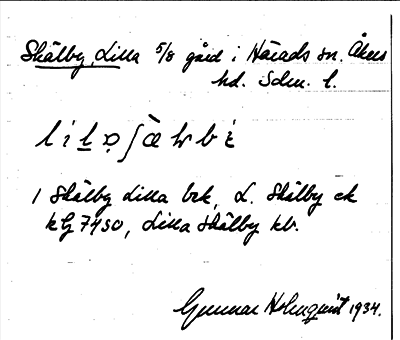 Skälby, Lilla 5/8 gård i Härads sn. Åkers
hd. Sdm. l.
l i l̲ ạ ʃ æ̀ w b i
1 Skälby Lilla bek, L. Skälby ek
kG 7450, Lilla Skälby kb.
Gunnar Holmquist 1934.